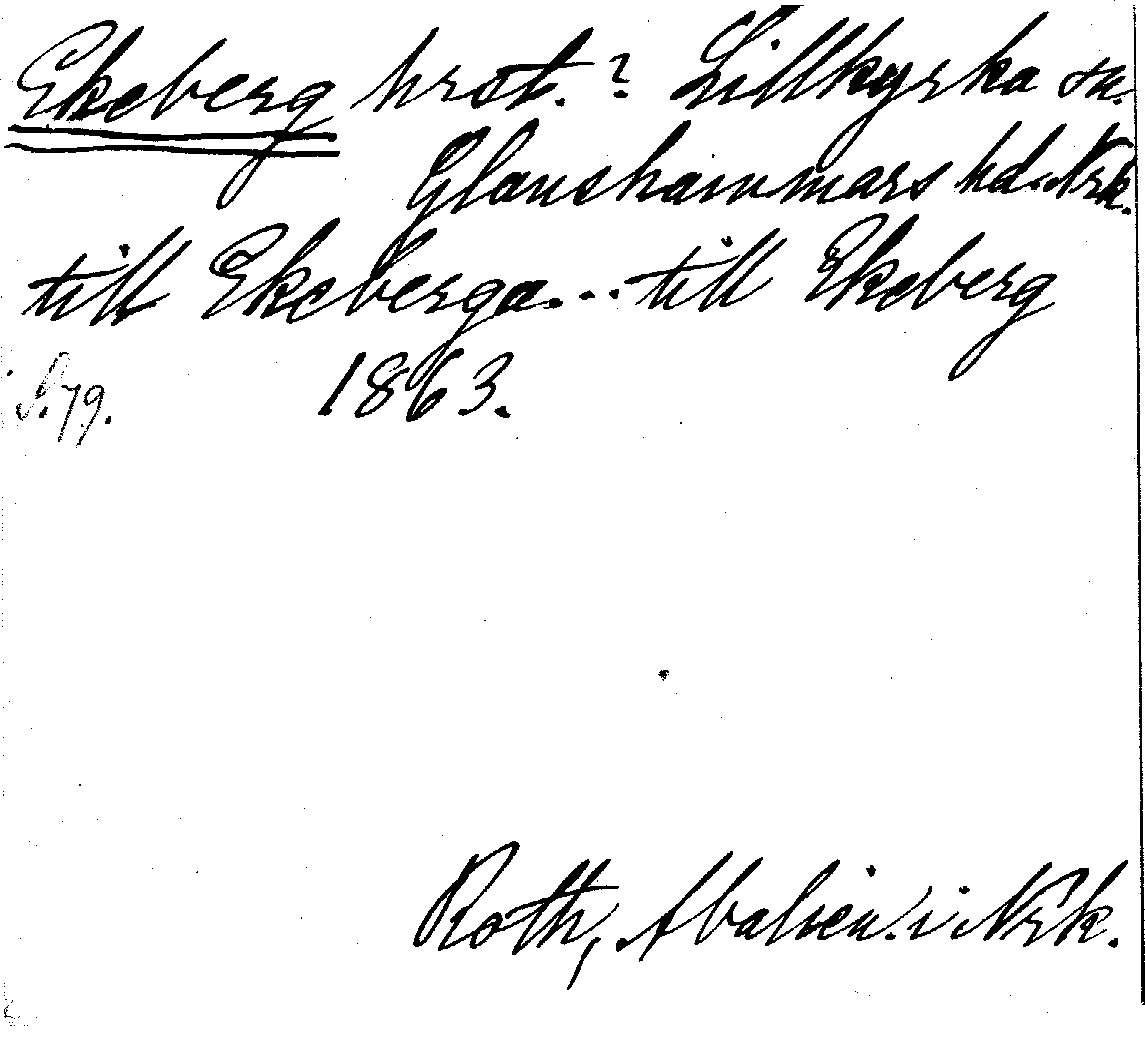 Ekeberg hrst.? Lillkyrka sn.
Glanshammars hd. Nrk.
till Ekeberga... till Ekeberg
S. 79. 1863.
Roth, Abalien. i Nrk.